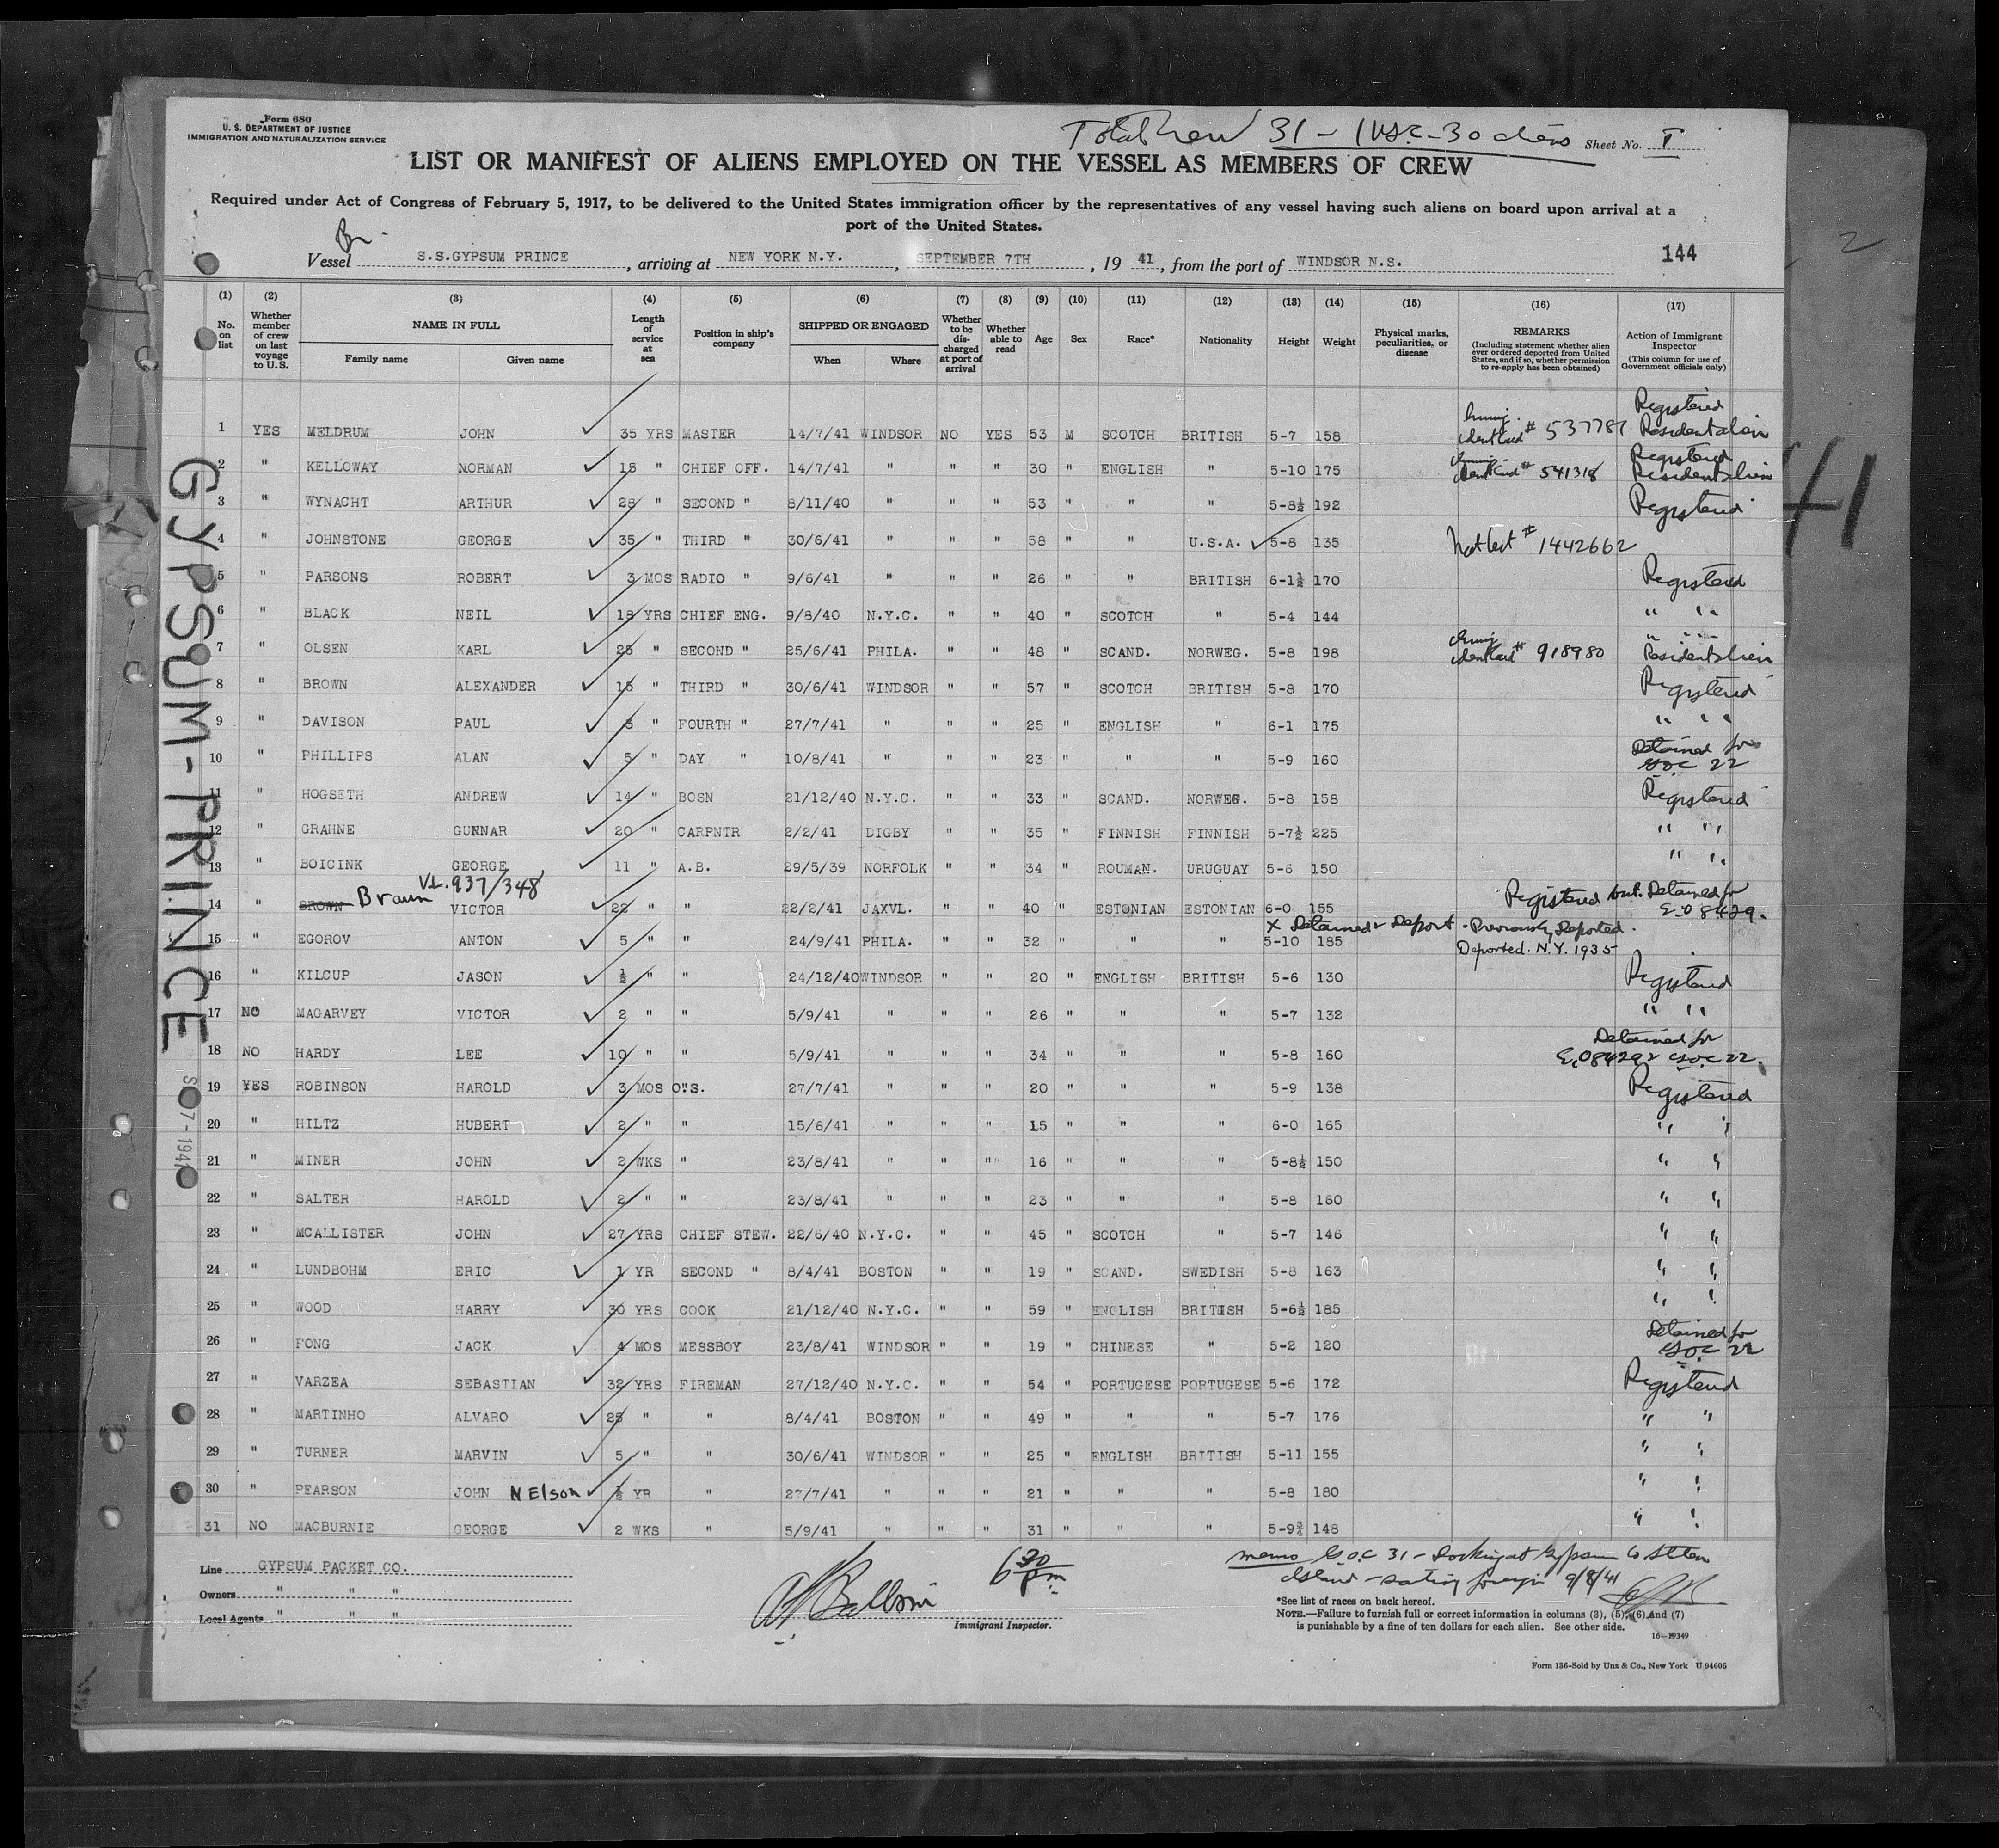 Form 680
U. S. DEPARTMENT OF JUSTICE
IMMIGRATION AND NATURALIZATION SERVICE
Total crew 31 - 1 USC - 30 aliens Sheet No. I
LIST OR MANIFEST OF ALIENS EMPLOYED ON THE VESSEL AS MEMBERS OF CREW
Required under Act of Congress of February 5, 1917, to be delivered to the United States immigration officer by the representatives of any vessel having such aliens on board upon arrival at a
port of the United States.
Br.
Vessel S.S.GYPSUM PRINCE, arriving at NEW YORK N.Y., SEPTEMBER 7TH, 19 41, from the port of WINDSOR N.S. 144
(1) (2) (3) (4) (5) (6) (7) (8) (9) (10) (11) (12) (13) (14) (15) (16) (17)
No. on list
Whether member of crew on last voyage to U.S.
NAME IN FULL
Family name Given name
Length of service at sea
Position in ship's company
SHIPPED OR ENGAGED
When Where
Whether to be discharged at port of arrival
Whether able to read
Age
Sex
Race*
Nationality
Height
Weight
Physical marks, peculiarities, or disease
REMARKS
(Including statement whether alien ever ordered deported from United States, and if so, whether permission to re-apply has been obtained)
Action of Immigrant Inspector
(This column for use of Government officials only)
1 YES MELDRUM JOHN 35 YRS MASTER 14/7/41 WINDSOR NO YES 53 M SCOTCH BRITISH 5-7 158 Immig. Ident Card # 537787 Registered Resident alien
2 " KELLOWAY NORMAN 15 " CHIEF OFF. 14/7/41 " " " 30 " ENGLISH " 5-10 175 Immig Ident Card # 541318 Registered Resident alien
3 " WYNACHT ARTHUR 28 " SECOND " 8/11/40 " " " 53 " " " 5-8½ 192 Registered
4 " JOHNSTONE GEORGE 35 " THIRD " 30/6/41 " " " 58 " " U.S.A. 5-8 135 Nat Cert # 1442662
5 " PARSONS ROBERT 3 MOS RADIO " 9/6/41 " " " 26 " " BRITISH 6-1½ 170 Registered
6 " BLACK NEIL 18 YRS CHIEF ENG. 9/8/40 N.Y.C. " " 40 " SCOTCH " 5-4 144 " "
7 " OLSEN KARL 25 " SECOND " 25/6/41 PHILA. " " 48 " SCAND. NORWEG. 5-8 198 Immig Ident Card # 918980 " " Resident alien
8 " BROWN ALEXANDER 15 " THIRD " 30/6/41 WINDSOR " " 57 " SCOTCH BRITISH 5-8 170 Registered
9 " DAVISON PAUL 5 " FOURTH " 27/7/41 " " " 25 " ENGLISH " 6-1 175 " "
10 " PHILLIPS ALAN 5 " DAY " 10/8/41 " " " 23 " " " 5-9 160 Detained for GOC 22
11 " HOGSETH ANDREW 14 " BOSN 21/12/40 N.Y.C. " " 33 " SCAND. NORWEG. 5-8 158 Registered
12 " GRAHNE GUNNAR 20 " CARPNTR 2/2/41 DIGBY " " 35 " FINNISH FINNISH 5-7½ 225 " "
13 " BOICINK GEORGE 11 " A.B. 29/5/39 NORFOLK " " 34 " ROUMAN. URUGUAY 5-6 150 " "
14 " BROWN Braun VL.937/348 VICTOR 22 " " 22/2/41 JAXVL. " " 40 " ESTONIAN ESTONIAN 6-0 155 Registered but Detained for E.O 8429.
15 " EGOROV ANTON 5 " " 24/9/41 PHILA. " " 32 " " " 5-10 185 X Detained & Deport - Previously Deported. Deported. N.Y. 1935
16 " KILCUP JASON ½ " " 24/12/40 WINDSOR " " 20 " ENGLISH BRITISH 5-6 130 Registered
17 NO MAGARVEY VICTOR 2 " " 5/9/41 " " " 26 " " " 5-7 132 " "
18 NO HARDY LEE 10 " " 5/9/41 " " " 34 " " " 5-8 160 Detained for E.O 8429 & GOC 22.
19 YES ROBINSON HAROLD 3 MOS O.S. 27/7/41 " " " 20 " " " 5-9 138 Registered
20 " HILTZ HUBERT 2 " " 15/6/41 " " " 15 " " " 6-0 165 " "
21 " MINER JOHN 2 WKS " 23/8/41 " " " 16 " " " 5-8½ 150 " "
22 " SALTER HAROLD 2 " " 23/8/41 " " " 23 " " " 5-8 160 " "
23 " MCALLISTER JOHN 27 YRS CHIEF STEW. 22/6/40 N.Y.C. " " 45 " SCOTCH " 5-7 146 " "
24 " LUNDBOHM ERIC 1 YR SECOND " 8/4/41 BOSTON " " 19 " SCAND. SWEDISH 5-8 163 " "
25 " WOOD HARRY 30 YRS COOK 21/12/40 N.Y.C. " " 59 " ENGLISH BRITISH 5-6½ 185 " "
26 " FONG JACK 4 MOS MESSBOY 23/8/41 WINDSOR " " 19 " CHINESE " 5-2 120 Detained for GOC 22
27 " VARZEA SEBASTIAN 32 YRS FIREMAN 27/12/40 N.Y.C. " " 54 " PORTUGESE PORTUGESE 5-6 172 Registered
28 " MARTINHO ALVARO 25 " " 8/4/41 BOSTON " " 49 " " " 5-7 176 " "
29 " TURNER MARVIN 5 " " 30/6/41 WINDSOR " " 25 " ENGLISH BRITISH 5-11 155 " "
30 " PEARSON JOHN NElson ½ YR " 27/7/41 " " " 21 " " " 5-8 180 " "
31 NO MACBURNIE GEORGE 2 WKS " 5/9/41 " " " 31 " " " 5-9¾ 148 " "
GYPSUM-PRINCE
41
2
Line GYPSUM PACKET CO.
Owners " " "
Local Agents " " "
6 30 pm
Immigrant Inspector.
memo G.O.C 31 - Docking at Gypsum Co Staten
Island - sailing foreign 9/8/41
*See list of races on back hereof.
NOTE.—Failure to furnish full or correct information in columns (3), (5), (6) and (7)
is punishable by a fine of ten dollars for each alien. See other side.
16—19349
Form 136-Sold by Unz & Co., New York U 94605